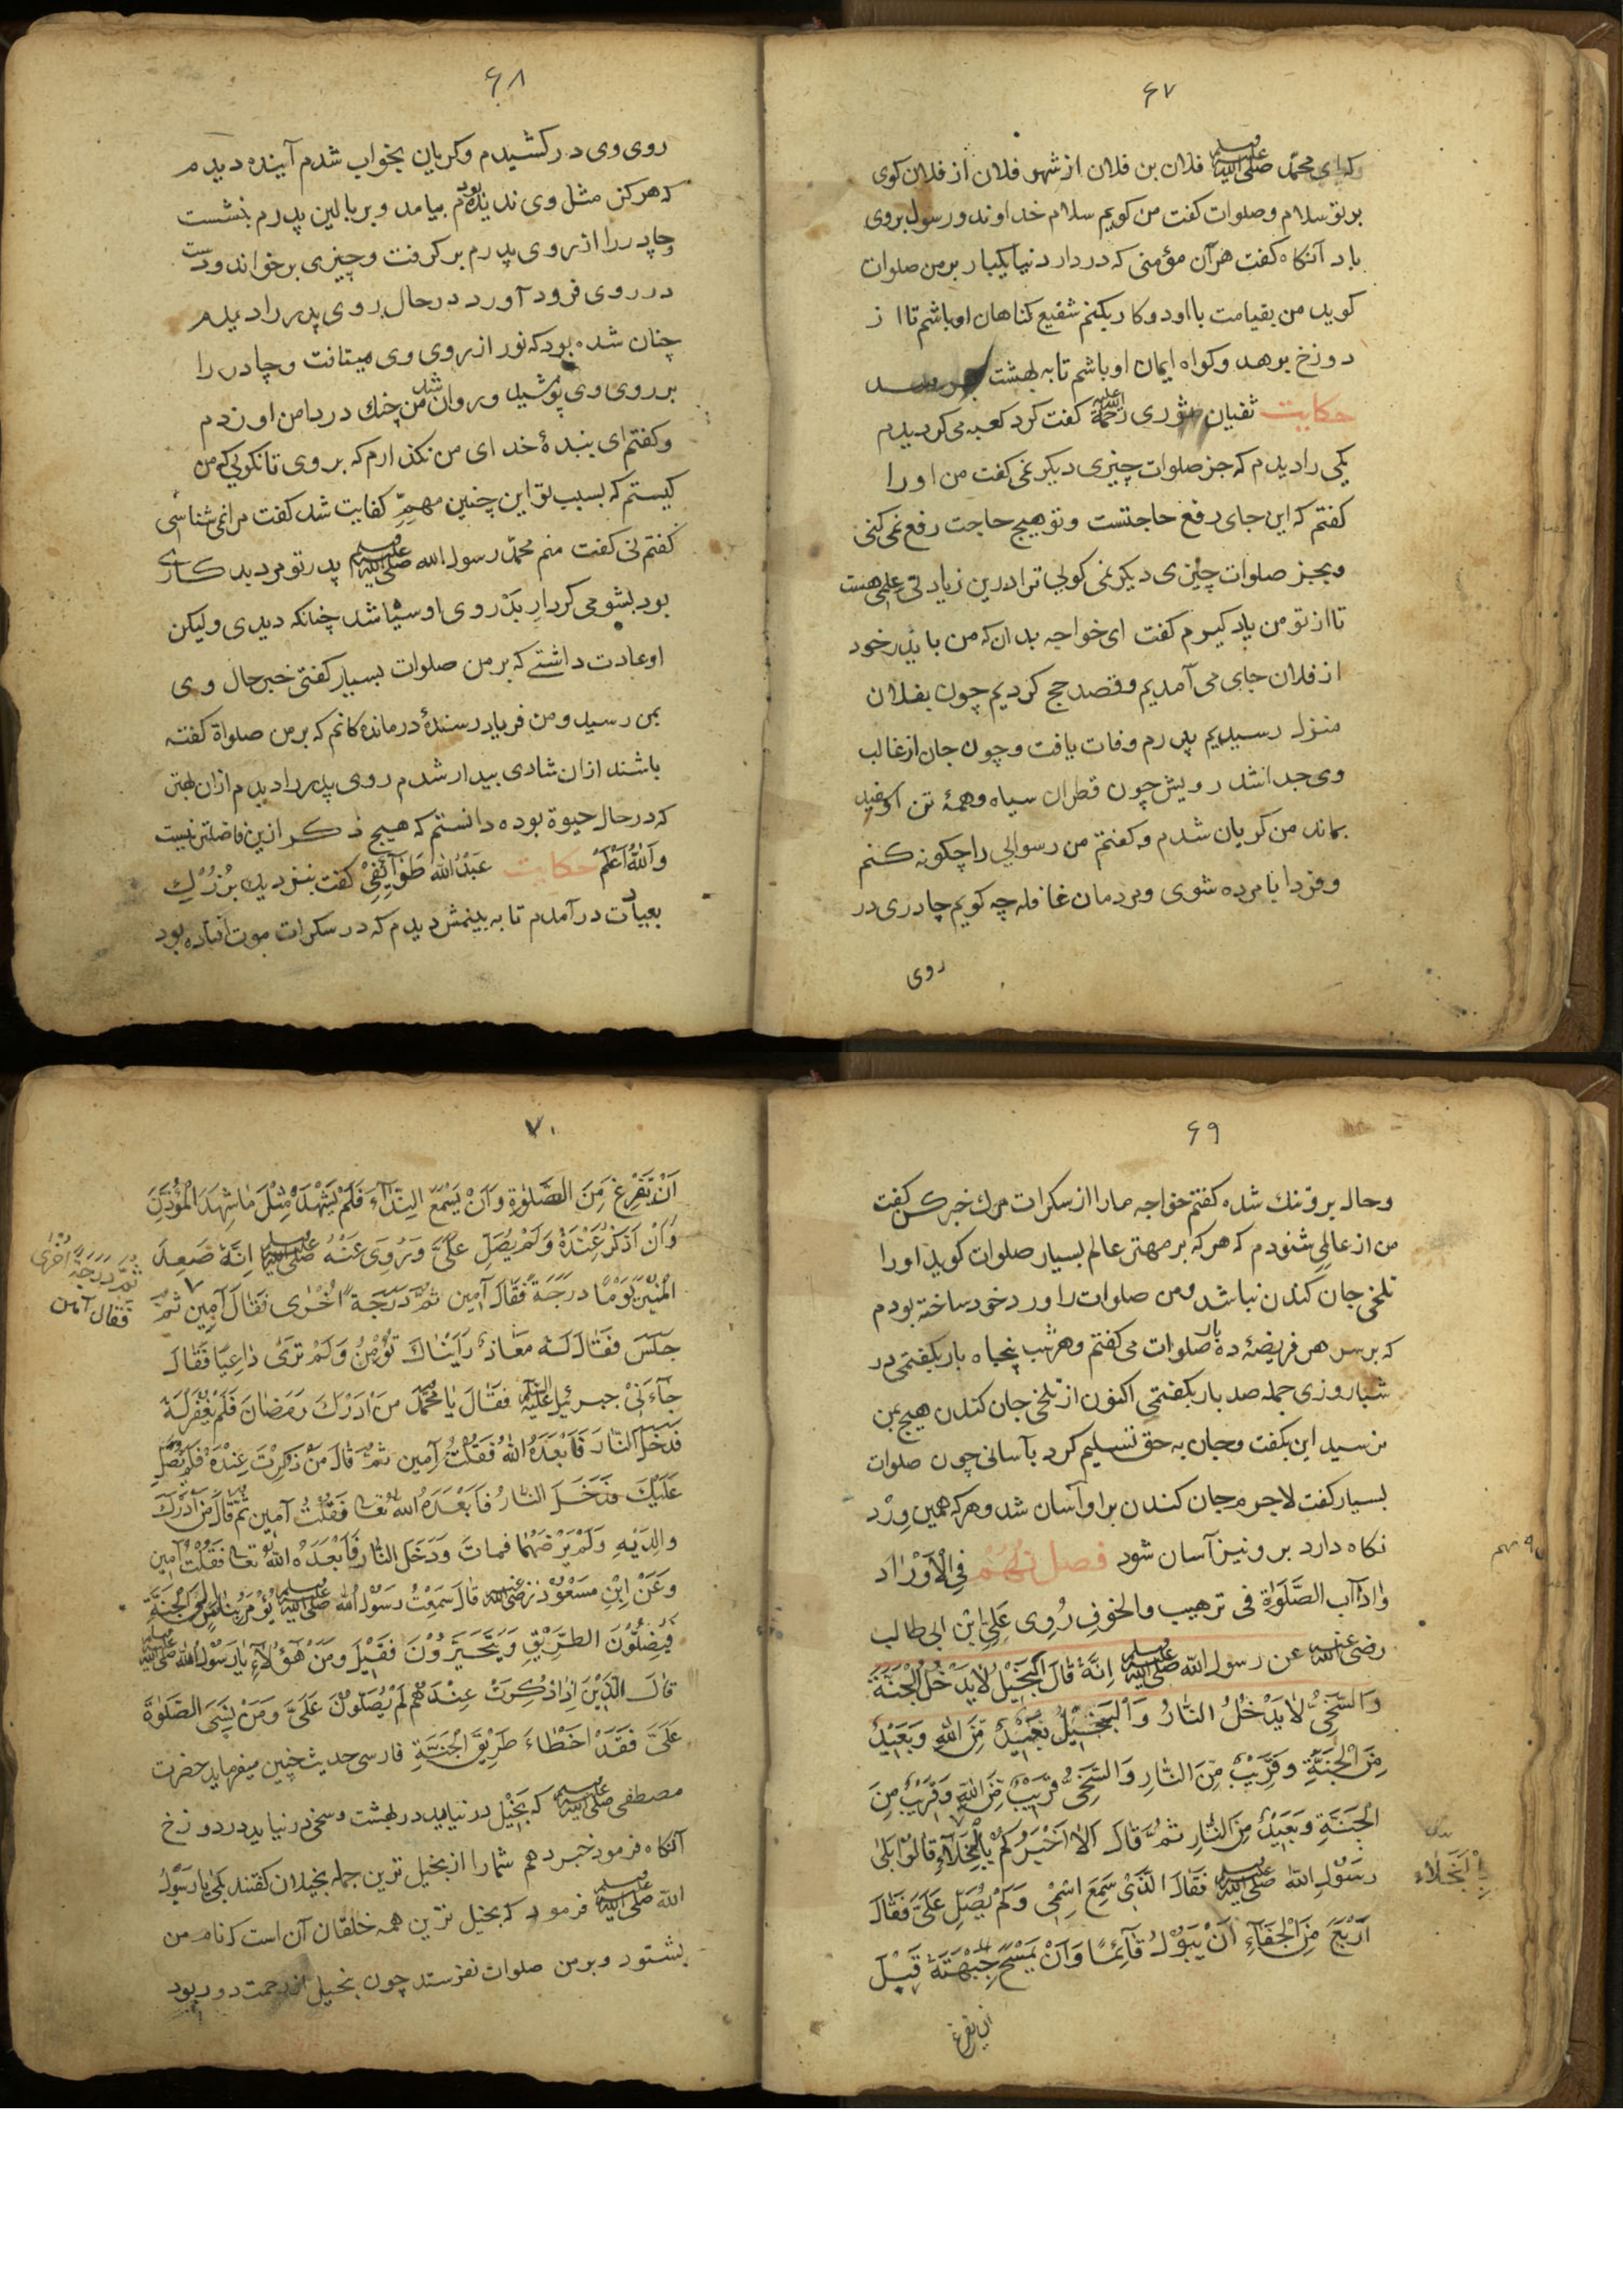 ۶۷
که ای محمّد صلی الله علیه وسلم فلان بن فلان از شهر فلان از فلان کوی
بر تو سلام و صلوات کفت من کویم سلام خداوند و رسول بروی
باد آنکاه کفت هر آن مؤمنی که در دار دنیا یکبار بر من صلوات
کوید من بقیامت با او دو کار بکنم شفیع کناهان او باشم تا از
دوزخ برهد و کواه ایمان او باشم تا به بهشت برسد
حکایت ثفیان ثوری رحمة الله علیه کفت کرد کعبه می کردیدم
یکی را دیدم که جز صلوات چیزی دیکر نمی کفت من او را
کفتم که این جای رفع حاجتست و تو هیچ حاجت رفع نمی کنی
و بجز صلوات چیزی دیکر نمی کویی ترا درین زیادتی علمی هست
تا از تو من یاد کیرم کفت ای خواجه بدان که من با پدر خود
از فلان جای می آمدیم و قصد حج کردیم چون بفلان
منزل رسیدیم پدرم وفات یافت و چون جان از غالب
وی جدا شد رویش چون قطران سیاه و همهٔ تن او سفید
بماند من کریان شدم و کفتم من رسوایی را چکونه کنم
و فردا با مرده شوی و مردمان غافله چه کویم چادری در
روی
۶۸
روی وی در کشیدم و کریان بخواب شدم آینده دیدم
که هرکز مثل وی ندیده بودم بیامد و بر بالین پدرم بنشست
و چادر را از روی پدرم بر کرفت و چیزی بر خواند و دست
در روی فرود آورد در حال روی پدر را دیدم
چنان شده بود که نور از روی وی میتافت و چادر را
بر روی وی پوشید و روان شد من چنك در دامن او زدم
و کفتم ای بندهٔ خدای من نکذارم که بروی تا نکویی که من
کیستم که بسبب تو این چنین مهمّ کفایت شد کفت مرا نمی شناسی
کفتم نی کفت منم محمّد رسول الله صلی الله علیه وسلم پدر تو مرد بد کاری
بود بشومی کردار بد روی او سیاه شد چنانکه دیدی و لیکن
او عادت داشتے که بر من صلوات بسیار کفتی خبر حال وی
بمن رسید و من فریاد رسندهٔ درمانده کانم که بر من صلواة کفته
باشند از ان شادی بیدار شدم روی پدر را دیدم از ان بهتر
که در حال حیوة بوده دانستم که هیچ ذکر ازین فاضلتر نیست
وَاَللّٰهُ اَعْلَمْ حکایت عَبْدُ الله طَوَآئِفِیْ کفت بنزدیك بزرك
بعیادت در آمدم تا به بینمش دیدم که در سکرات موت افتاده بود
۶۹
و حال برو تنك شده کفتم خواجه ما را از سکرات مرك خبر کن کفت
من از عالمی شنودم که هر که بر مهتر عالم بسیار صلوات کوید او را
تلخی جان کندن نباشد و من صلوات را ورد خود ساخته بودم
که بر سر هر فریضهٔ ده بار صلوات می کفتم و هر شب پنجاه بار بکفتمی در
شبا روزی جمله صد بار بکفتمی اکنون از تلخی جان کندن هیچ بمن
نرسید این بکفت و جان به حق تسلیم کرد بآسانی چون صلوات
بسیار کفت لاجرم جان کندن بر او آسان شد و هر که همین وِرْد
نکاه دارد برو نیز آسان شود فصل نهم فِی الْاَوْرٰاد
وٰادآب الصَّلَوٰة فی ترهیب والخوف رُوِی عَلِیِّ ابْنِ ابی طالب
رضی الله عنه عن رسول الله صلی الله علیه وسلم اِنَّهُ قَالَ اَلبَخیْلُ لاٰیَدْخُلُ الْجَنَّةَ
وَالسَّخِیُّ لاٰیَدْخُلُ النّٰارُ وَالْبَخیْلُ بَعَیْدٌ مِّنَ اللّٰهِ وَبَعَیْدٌ
مِّنَ الْجَنَّةِ وَقَرِیْبٌ مِّنَ النّٰارِ وَالسَّخِیُّ قَرِیْبٌ مِّنَ اللّٰهِ وَقَرِیْبٌ مِنَ
الْجَنَّةِ وَبَعَیْدٌ مِنَ النّٰارِ ثُمَّ قٰالَ اَلاٰ اَخْبَرُکُمْ بِالْبُخَلَآءِ قٰالُوْا بَلٰی
رَسُوْلِ اللّٰه صلی الله علیه وسلم فَقٰالَ الَّذَیْ سَمِعَ اسْمْی وَلَمْ یُصَلِّ عَلَیَّ فَقٰالَ
اَرْبَعٌ مِّنَ الْجَفَآءِ اَنْ یَبُوْلَ قَآئِمًا وَاَنْ یَمْسَحَ جَبْهَتَهُ قَبْلَ
نهم
بِالْبَخَلاء
ان یفرغ
۷۰
اَنْ یَّفْرِغَ مِنَ الصَّلٰوٰةِ وَاَنْ یَسْمَعَ النِّدَآءَ فَلَمْ یَشْهَدْ مِثْلَ مٰا شِهِدَ الْمُؤَذِّنَ
وَاَنْ اُذْکَرْ عِنْدَهُ وَلَمْ یُصَلِّ عَلَیَّ وَرُوِیَ عَنْهُ صلی الله علیه وسلم اِنَّهُ صَعِدَ
الْمُنِبَّرْ یَوْمًا دَرَجَةً فَقٰالَ آمِین ثُمَّ دَرَجَةً اُخْرٰی فَقٰالَ آمِین ثُمَّ
ثُمَّ دَرَجَةً اُخْرٰی
فقال آمین
جَلَسَ فَقٰالَ لَهُ مَعٰاذٌ رَاَیْنٰاكَ تُؤْمِنُ وَلَمْ تَرٰی دٰاعِیًا فَقٰالَ
جآءَنِیْ جبرئیل علیه السلم فقٰالَ یٰا مُحَمَّدْ مَنْ اَدْرَكَ رَمَضٰانَ فَلَمْ یُغْفَرْ لَهُ
فَدَخَلَ النّٰارَ فَاَبْعَدَهُ اللّٰهُ فَقُلْتُ آمِین ثُمَّ قٰالَ مَنْ ذَکِرْتَ عِنْدَهُ فَلَمْ یُصَلِّ
عَلَیْكَ فَدَخَلَ النّٰارُ فَاَبْعَدَهُ اللّٰهُ تعٰا فَقُلْتُ آمِین ثُمَّ قٰالَ مَنْ اَدْرَكَ
وٰالِدَیْهِ وَلَمْ یَرْضَهُمٰا فَمٰاتَ وَدَخَلَ النّٰارِ فَاَبْعَدَهُ اللّٰهُ تعٰا فَقُلْتُ آمین
وَعَنْ اِبْنِ مَسْعُوْد رضی الله عنه قٰالَ سَمِعْتُ رَسُوْلَ اللّٰه صلی الله علیه وسلم یُؤْمَرُ بِنٰاسٍ اِلَی الْجَنَّةِ
فَیَضِلُّوْنَ الطَّرِیْقِ وَیَتَحَیَّرُوْنَ فَقِیْلَ وَمَنْ هٰٓؤُلآءِ یٰا رَسُوْلَ اللّٰه صلی الله علیه وسلم
قٰالَ الَّذِیْنَ اِذٰا ذُکِرْتُ عِنْدَهُمْ لَمْ یُصَلُّوْنَ عَلَیَّ وَمَنْ یَنْسَیَ الصَّلٰوٰةَ
عَلَیَّ فَقَدْ اَخْطٰاءَ طَرِیْقَ الْجَنَّةِ فارسی حدیث چنین میفرماید حضرت
مصطفی صلی الله علیه وسلم که بخیل در نیاید در بهشت و سخی در نیاید در دوزخ
آنکاه فرمود خبر دهم شما را از بخیل ترین جمله بخیلان کفتند بلی یا رسول
الله صلی الله علیه وسلم فرمود که بخیل ترین همه خلقان آن است که نام من
بشنود و بر من صلوات نفرستد چون بخیل از رحمت دور بود